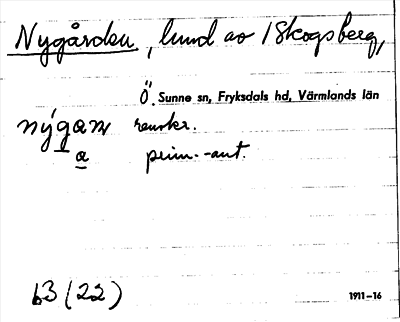 Nygården, lund av 1 Skogsberg,
Ö. Sunne sn, Fryksdals hd, Värmlands län
nýgaɲ
a prim.-ant.
b3 (22)
1911–16